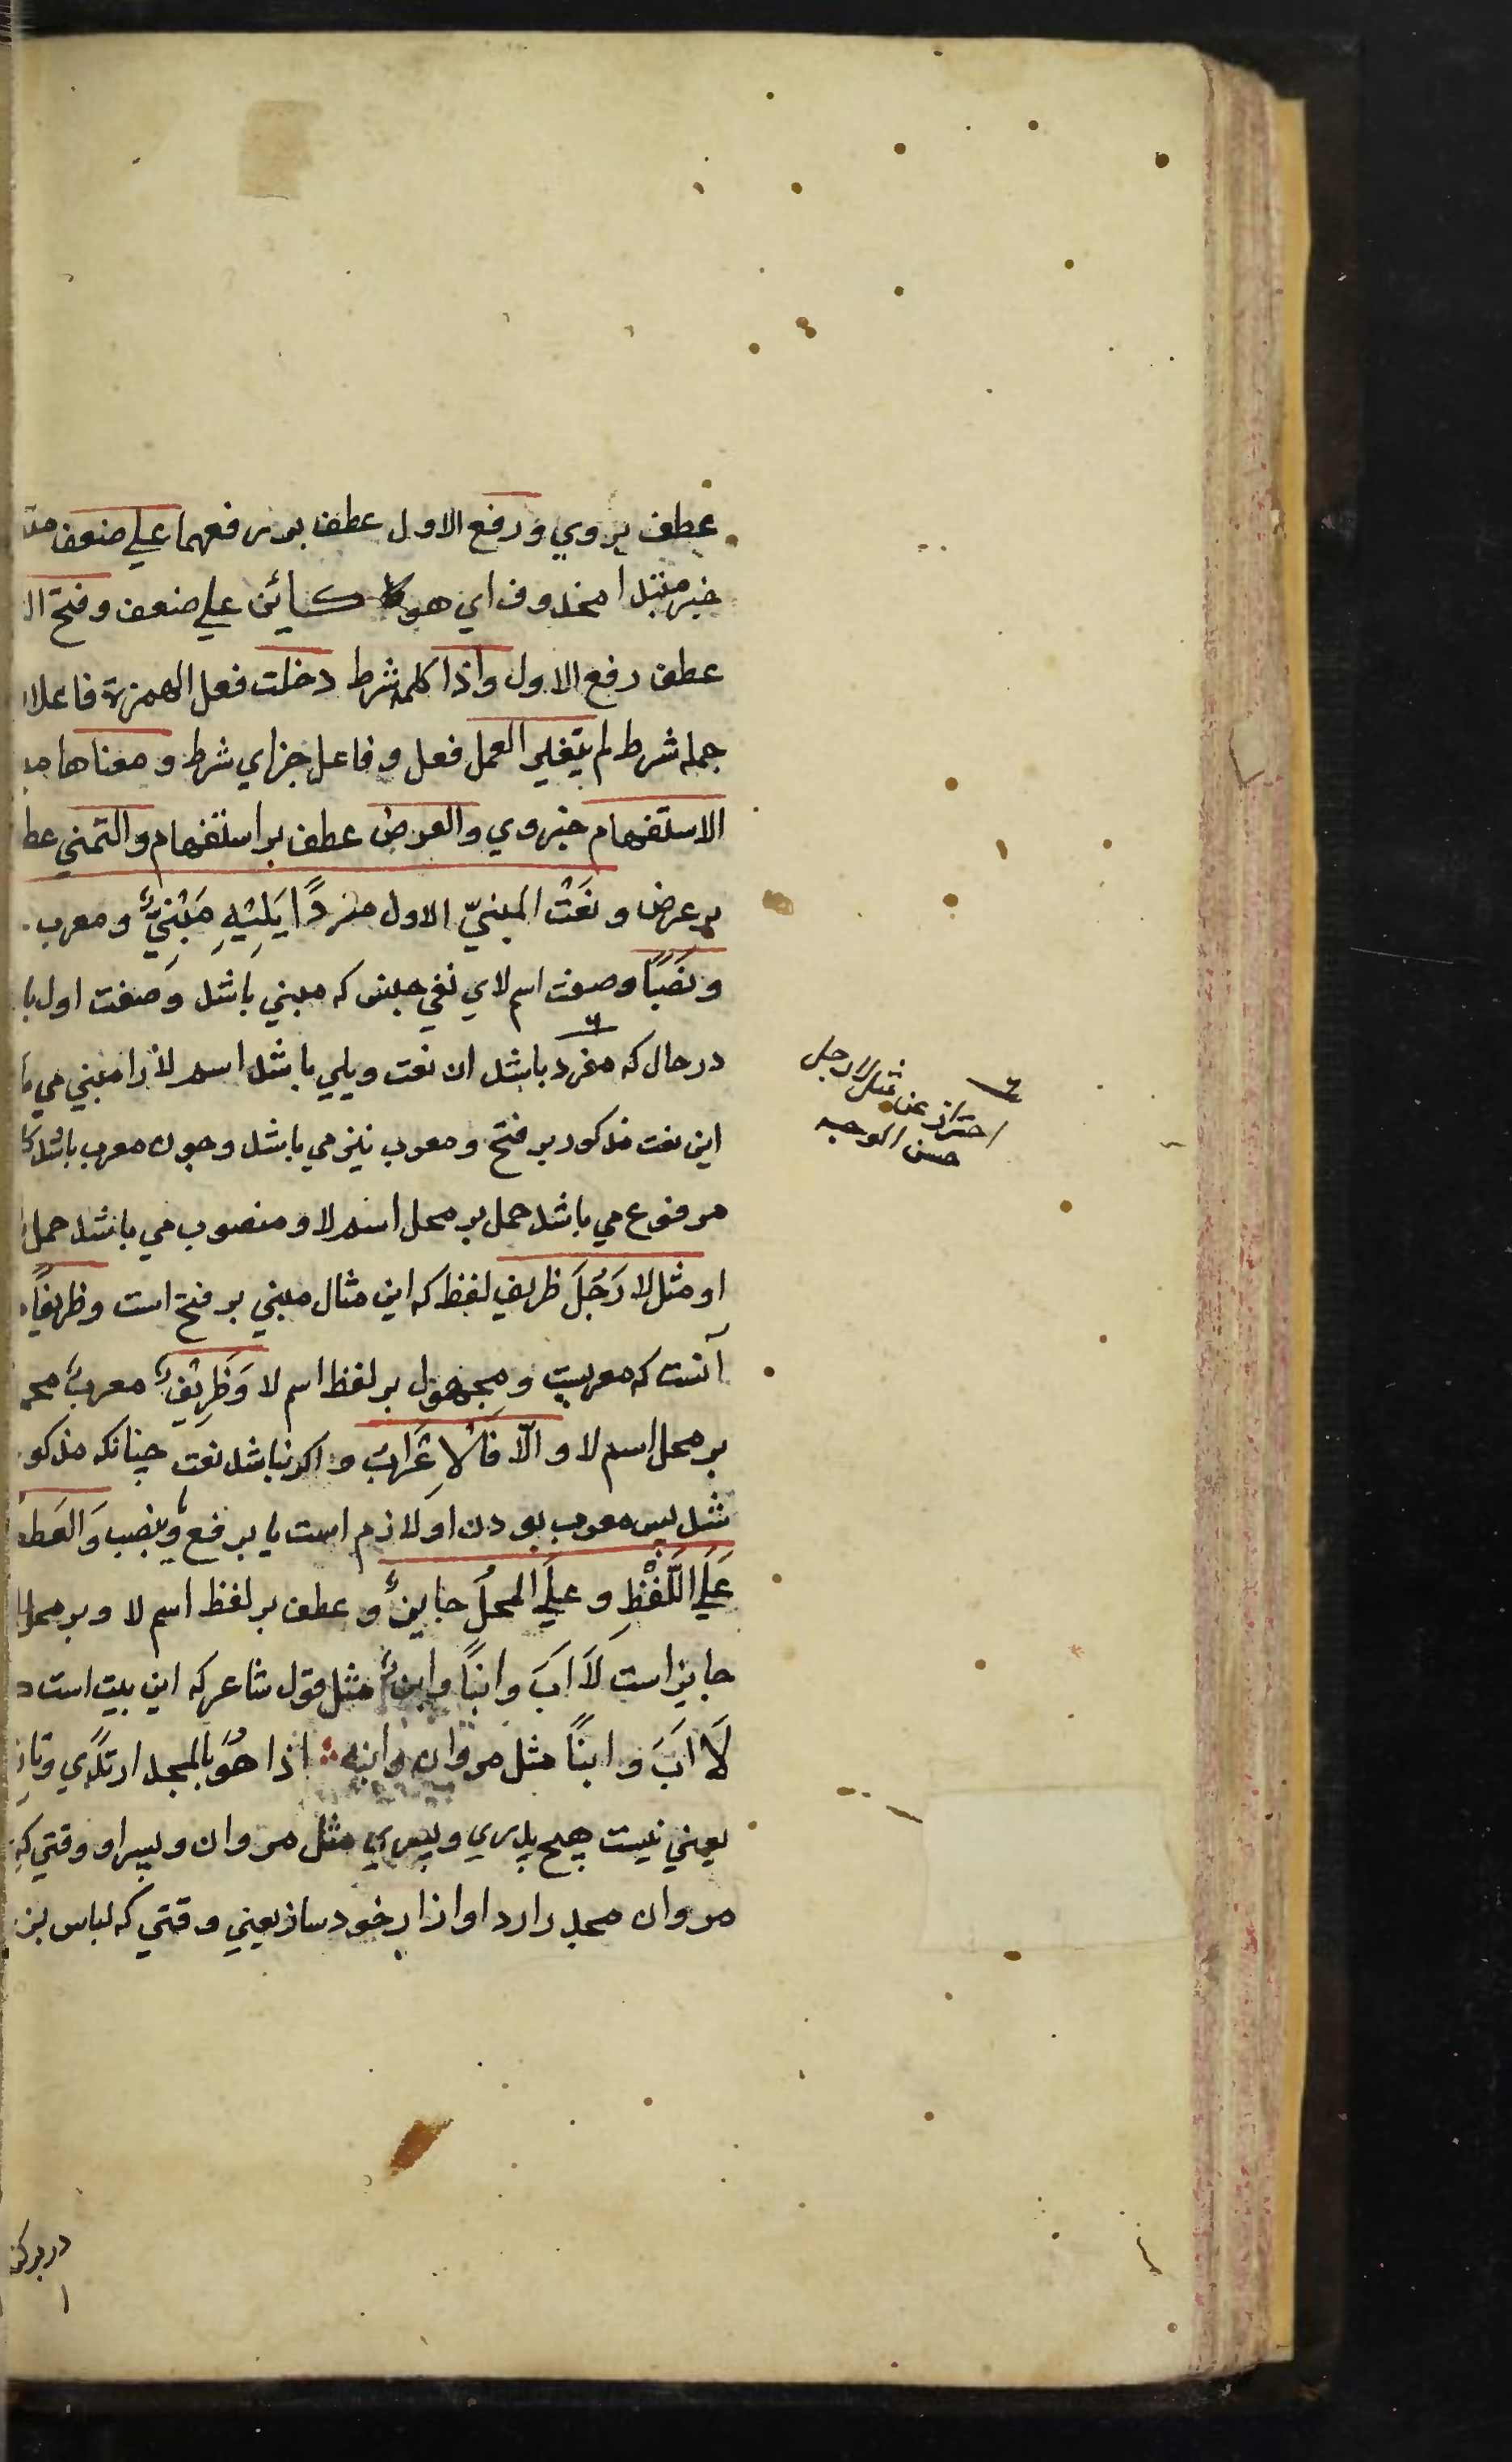 عطف بروي ورفع الاول عطف بر رفعهما علي ضعف
خبر مبتدا محذوف اي هو كائن علي ضعف وفتح
عطف رفع الاول واذا كلمه شرط دخلت فعل الهمزة فاعل
جمله شرط لم يتغير العمل فعل و فاعل جزاي شرط و معناها
الاستفهام خبر وي والعرض عطف بر استفهام والتمني
بر عرض و نَعْت المبنيّ الاول مفردًا يَلِيْهِ مَبْنِيٌّ و معرب
ونَصْبًا وصفت اسم لاي نفي جنس كه مبني باشد وصفت اول
در حال كه مفرد باشد ان نعت ويلي باشد اسم لا را مبني مي
اين نعت مذكور بر فتح و معرب نيز مي باشد وجون معرب باشد
مرفوع مي باشد حمل بر محل اسم لا و منصوب مي باشد حمل
او مثل لا رَجُلَ ظريف لفظ كه اين مثال مبني بر فتح است وظريفًا
آنست كه معربست و محمول بر لفظ اسم لا وَظَرِيْفٌ معرب
بر محل اسم لا و الّا فَالْاِعْرَابُ و اكر نباشد نعت جنانكه مذكو
شد پس معرب بودن او لازم است يا بر رفع و بنصب وَالعَطف
عَلَي اللَّفْظِ و عَلَي المحلِّ جايزٌ و عطف بر لفظ اسم لا و بر محل
جايز است لَا اَبَ وابنًا وابنٌ مثل قول شاعر كه اين بيت است
لَا اَبَ وابنًا مثل مروان وابنه اذا هُوَ بالمجد ارتدي
يعني نيست هيچ پدري و پسري مثل مروان و پسر او وقتي كه
مروان مجد را ردا و ازار خود سازد يعني وقتي كه لباس
احتراز عن مثل لا رجل
حسن الوجه
در بر